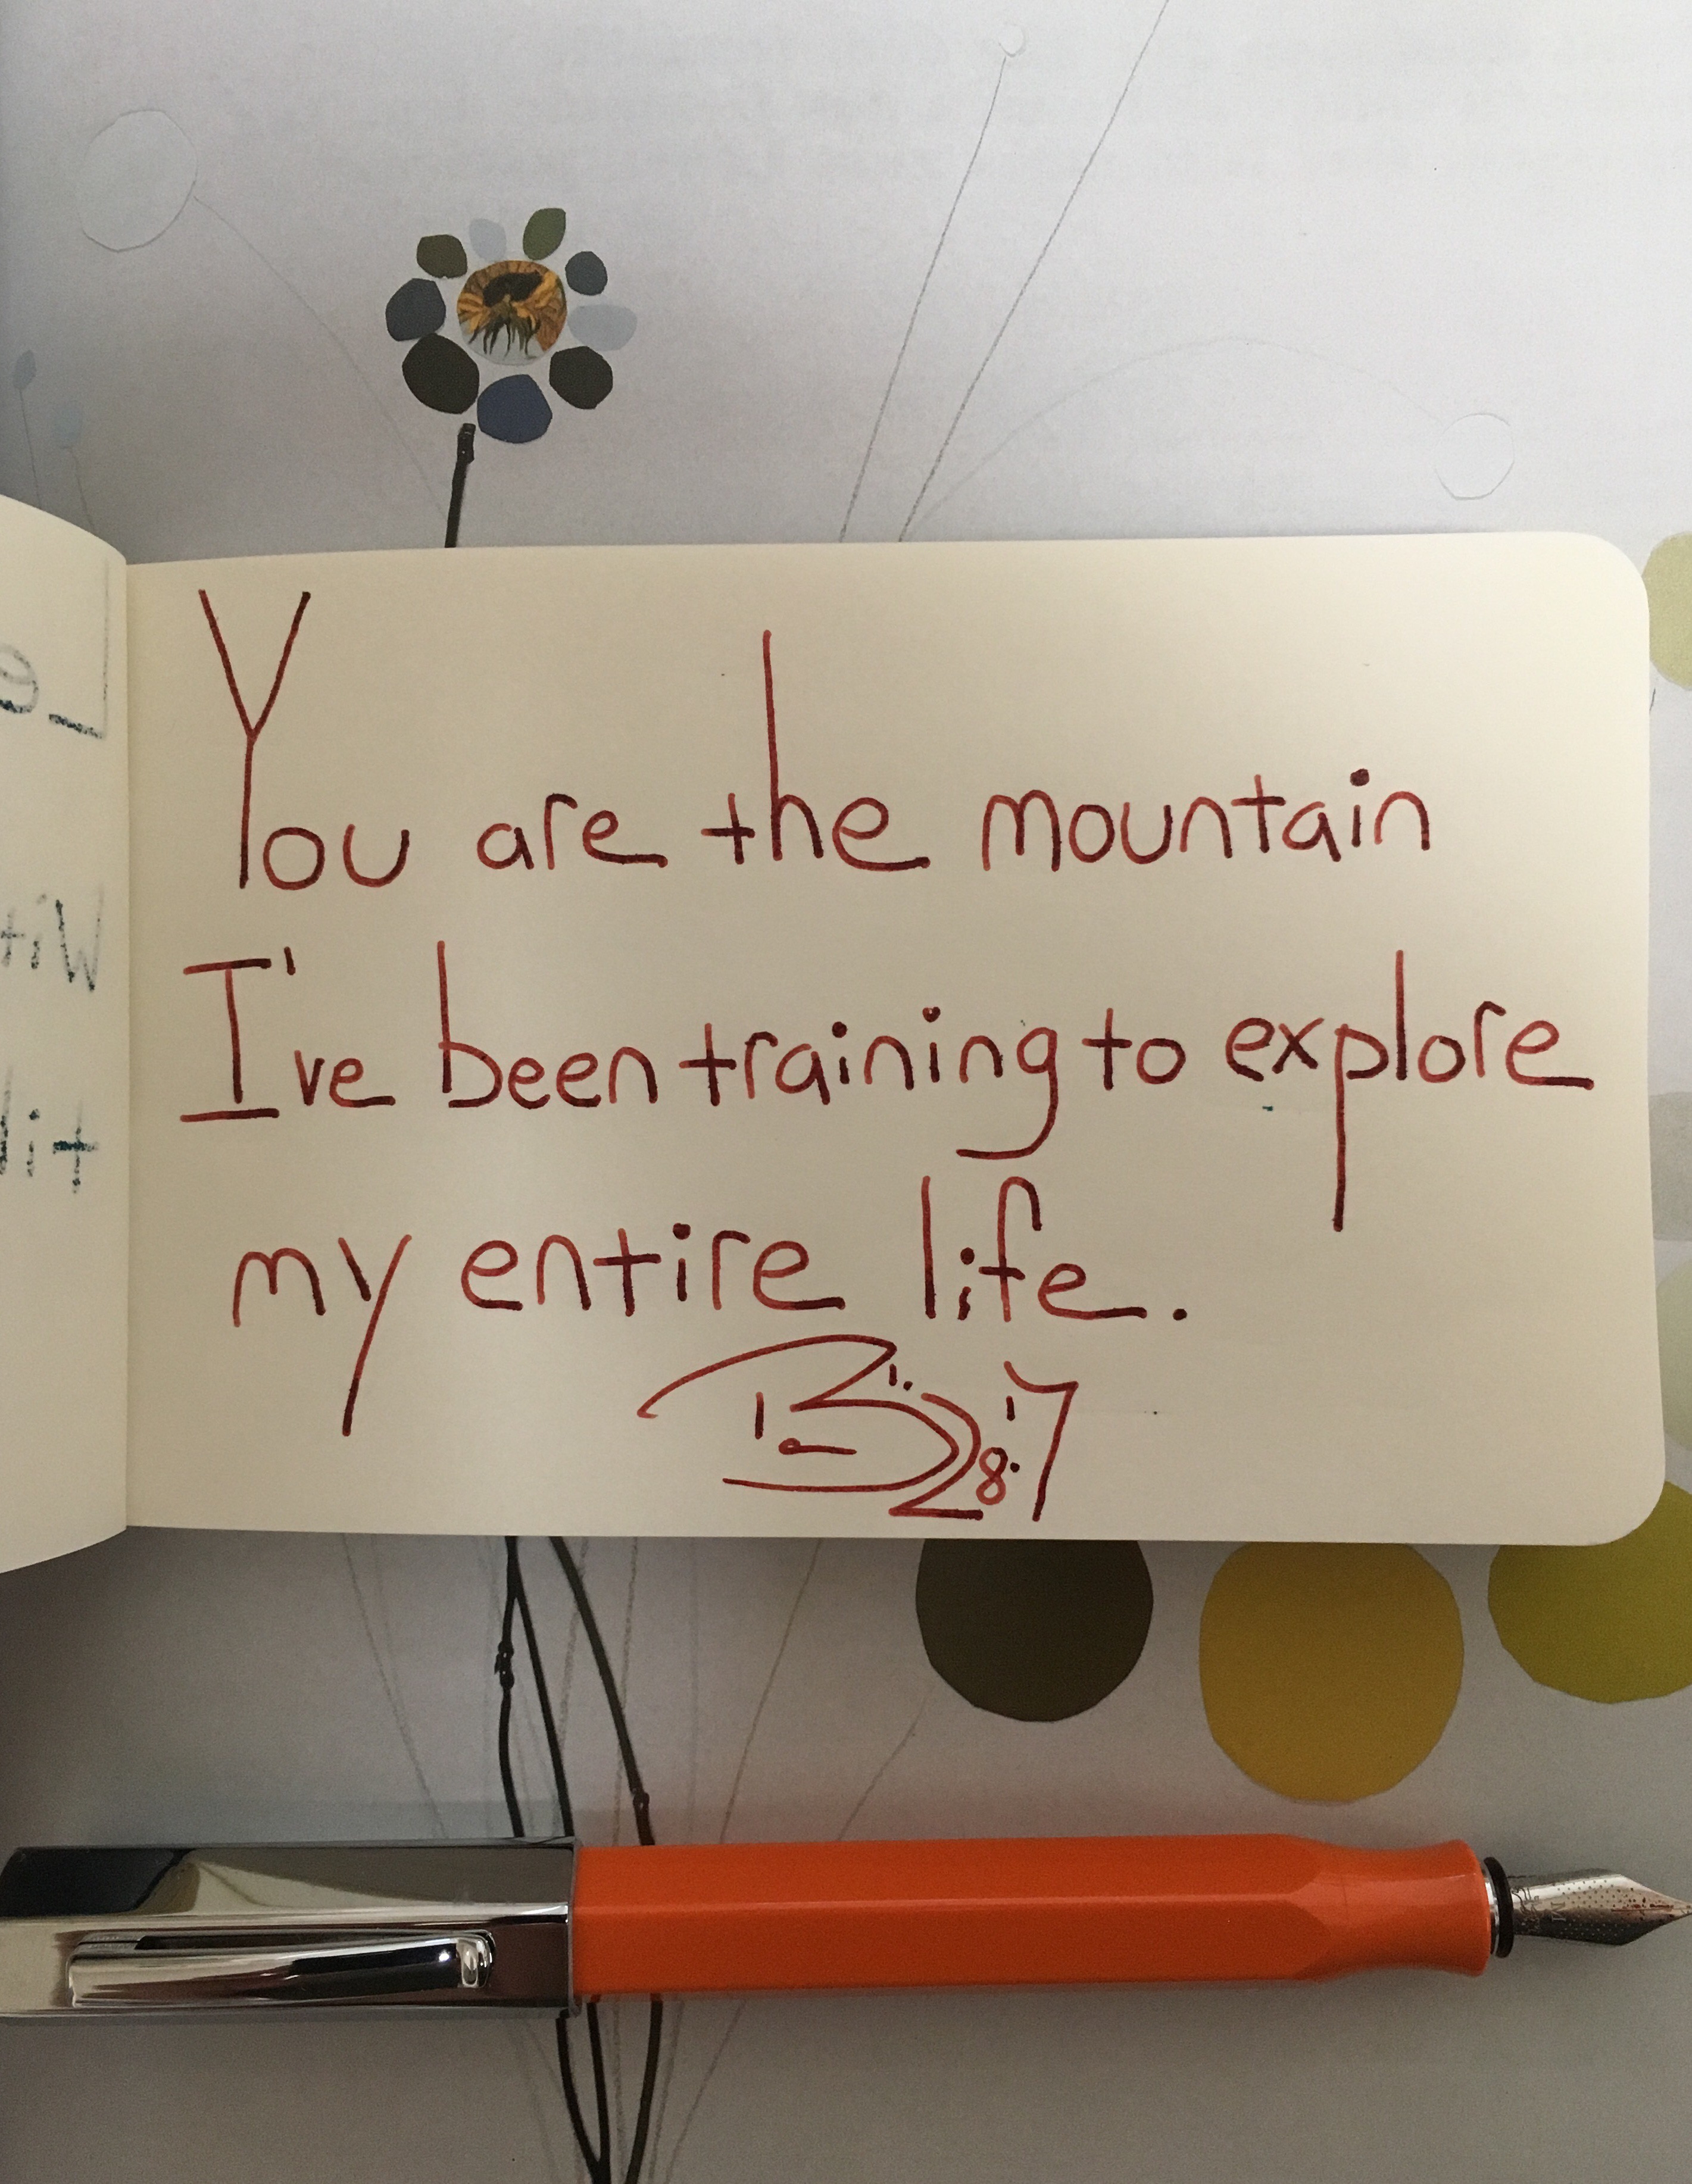 You are the mountain
I've been training to explore
my entire life.